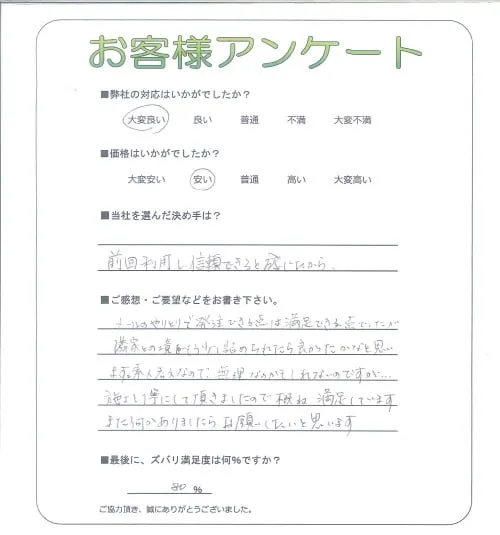 お客様アンケート
■弊社の対応はいかがでしたか？
大変良い 良い 普通 不満 大変不満
■価格はいかがでしたか？
大変安い 安い 普通 高い 大変高い
■当社を選んだ決め手は？
前回利用し信頼できると感じたから。
■ご感想・ご要望などをお書き下さい。
メールのやりとりで発注できる点は満足できる点でしたが
隣家との境がもう少し詰められたら良かったかなと思い
ます。素人考えなので、無理なのかもしれないのですが…
施工も丁寧にして頂きましたので概ね満足しています
また何かありましたらお願いしたいと思います
■最後に、ズバリ満足度は何％ですか？
80 %
ご協力頂き、誠にありがとうございました。